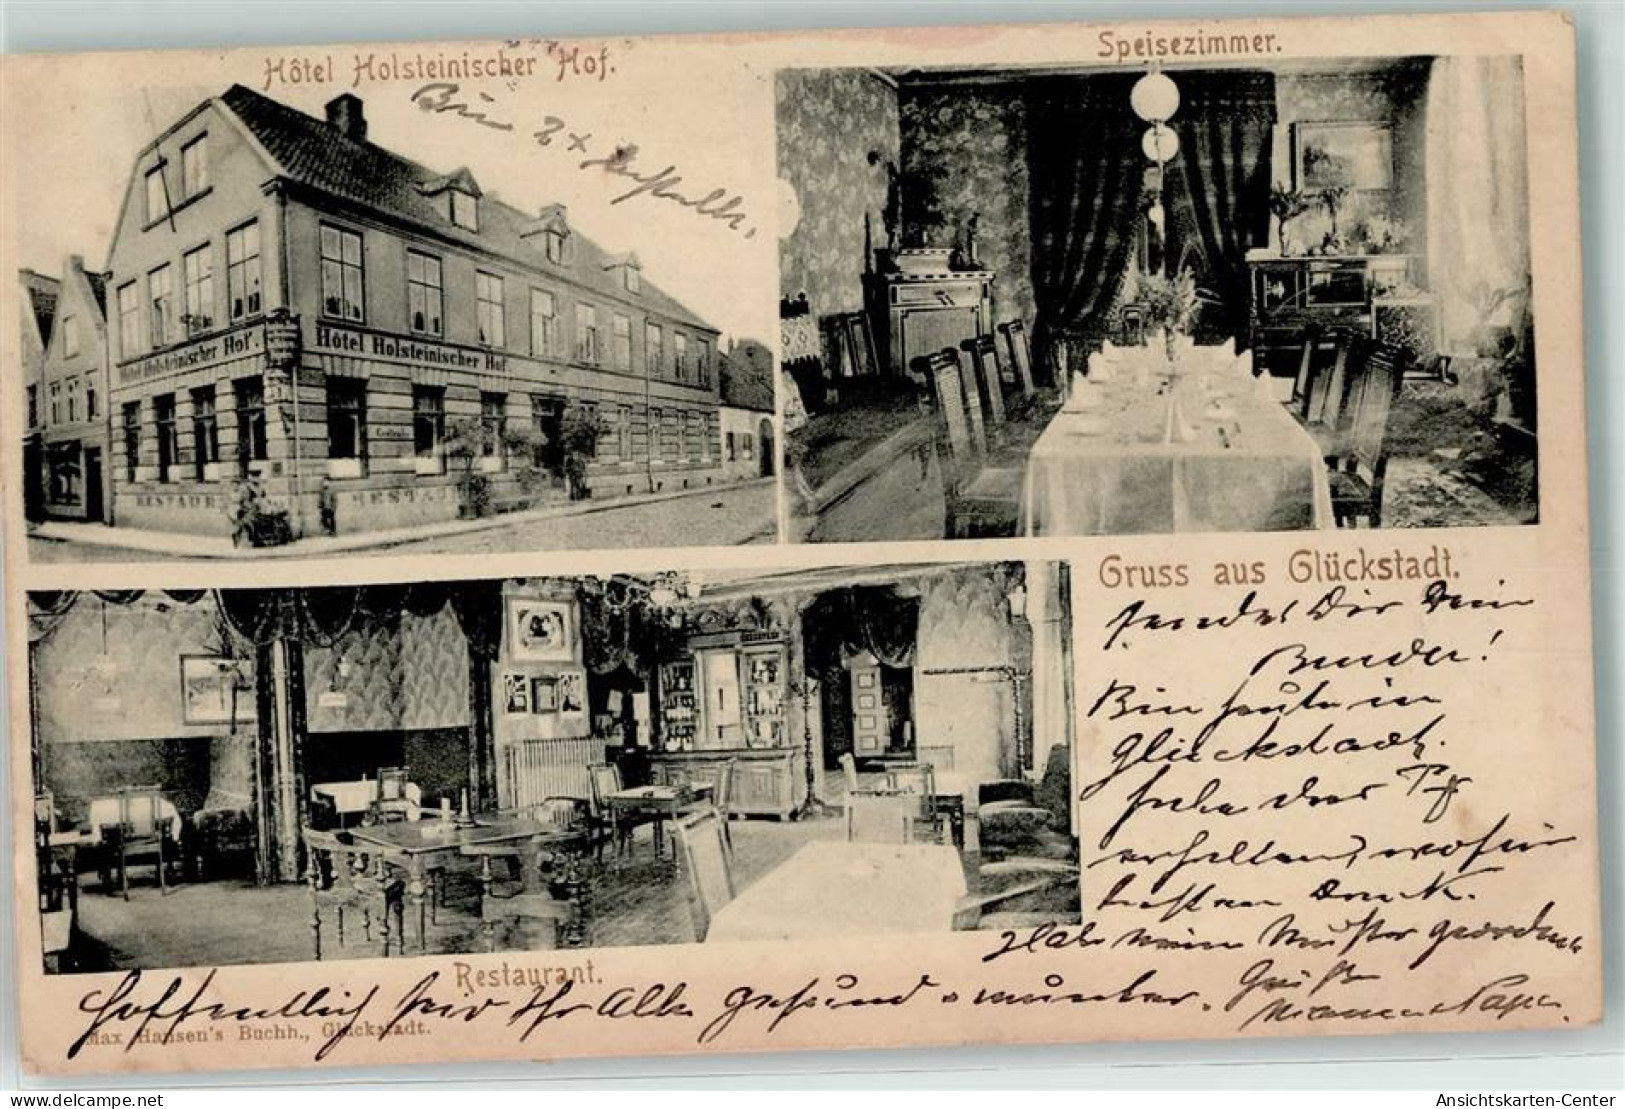 Hôtel Holsteinischer Hof.
Speisezimmer.
Hôtel Holsteinischer Hof.
Hôtel Holsteinischer Hof.
RESTAUR
RESTAU
Gruss aus Glückstadt.
sendet Dir Dein
Bruder!
Bin heute in
Glückstadt.
habe das
erhalten, wofür
Dank.
Habe meine Muster geordnet
Restaurant.
Hoffentlich seid Ihr Alle gesund u munter.
Grüße
Max Hansen's Buchh., Glückstadt.
Ansichtskarten-Center
www.delcampe.net